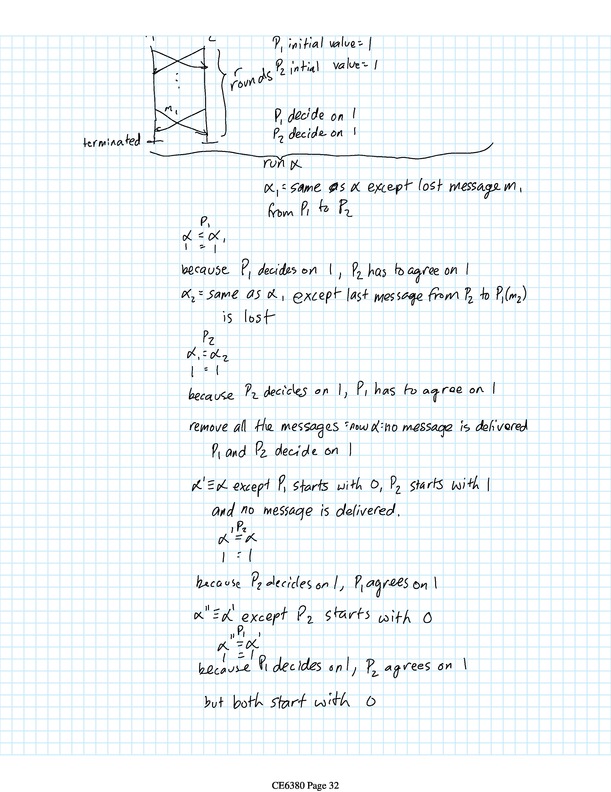 1 2
P₁ initial value = 1
P₂ intial value = 1
r rounds
m₁
P₁ decide on 1
P₂ decide on 1
terminated
run α
α₁ = same as α except lost message m₁
from P₁ to P₂
P₁
α = α₁
1 = 1
because P₁ decides on 1, P₂ has to agree on 1
α₂ = same as α₁ except last message from P₂ to P₁(m₂)
is lost
P₂
α₁ = α₂
1 = 1
because P₂ decides on 1, P₁ has to agree on 1
remove all the messages : now α : no message is delivered
P₁ and P₂ decide on 1
α' ≡ α except P₁ starts with 0, P₂ starts with 1
and no message is delivered.
P₂
α' = α
1 = 1
because P₂ decides on 1, P₁ agrees on 1
α'' ≡ α' except P₂ starts with 0
P₁
α'' = α'
1 = 1
because P₁ decides on 1, P₂ agrees on 1
but both start with 0
CE6380 Page 32